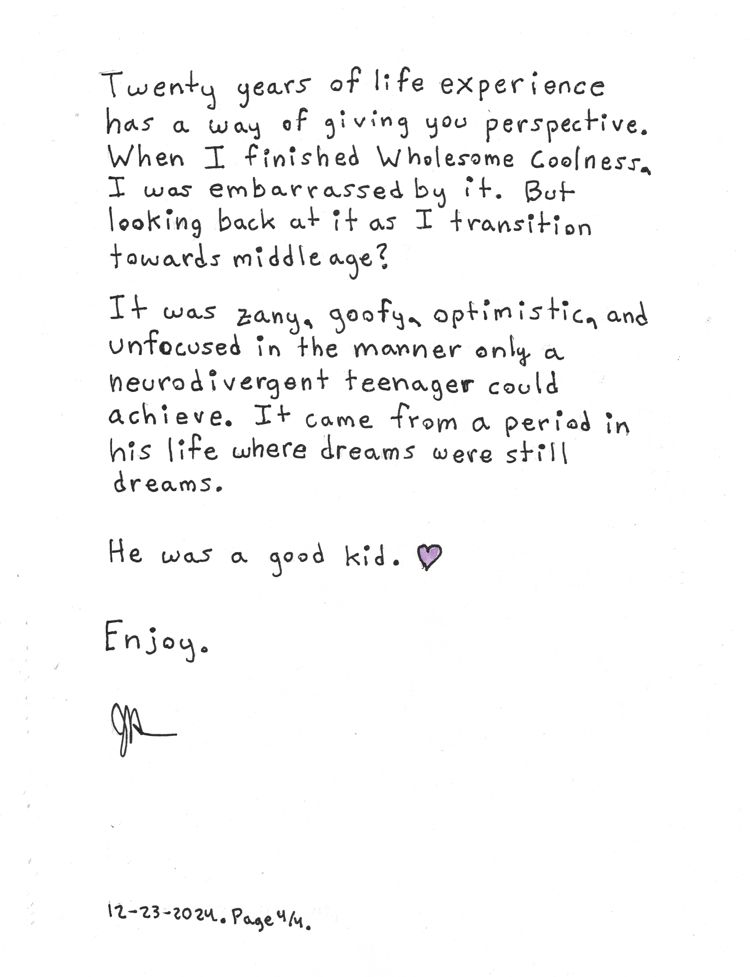 Twenty years of life experience
has a way of giving you perspective.
When I finished Wholesome Coolness,
I was embarrassed by it. But
looking back at it as I transition
towards middle age?
It was zany, goofy, optimistic, and
unfocused in the manner only a
neurodivergent teenager could
achieve. It came from a period in
his life where dreams were still
dreams.
He was a good kid. ♥
Enjoy.
12-23-2024. Page 4/4.